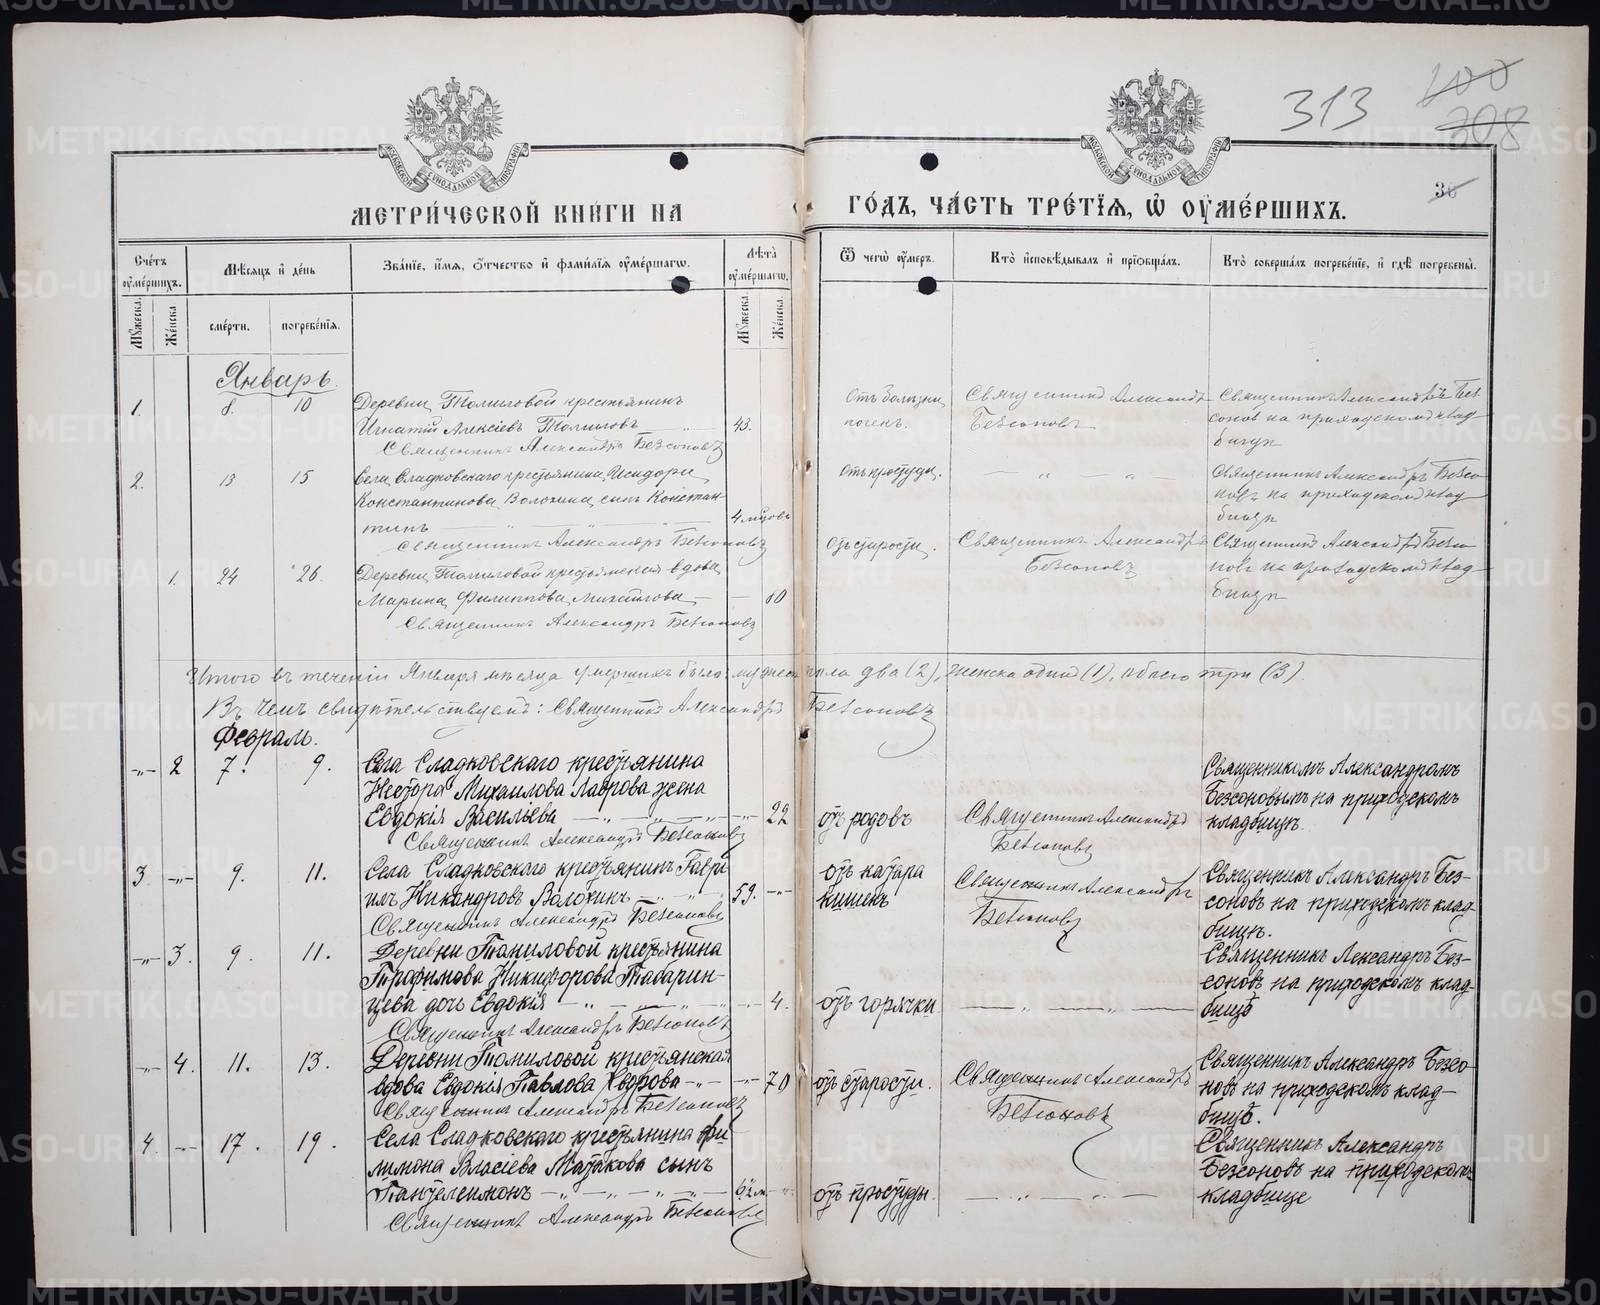 313
100
308
МЕТРИ́ЧЕСКОЙ КНИ́ГИ НА
ГО́ДЪ, ЧА́СТЬ ТРЕ́ТІѦ, Ѿ ОУМЕ́РШИХЪ.
Сче́тъ оуме́ршихъ.
Мѣ́сяцъ и де́нь
Зва́нїе, и́мя, о́тчество и фами́лїя оуме́ршагѡ.
Лѣ́та оуме́ршагѡ.
Ѿ чегѡ̀ оу́меръ.
Кто̀ исповѣ́дывалъ и прїобща́лъ.
Кто̀ соверша́лъ погребе́нїе, и гдѣ̀ погребены̀.
Му́жеска.
Же́нска
сме́рти.
погребе́нїя.
Му́жеска.
Же́нска.
Январь.
1. 8. 10 Деревни Томиловой крестьянинъ
Игнатій Алексіевъ Томиловъ 43.
Священникъ Александръ Безсоновъ
Отъ болезни
почекъ.
Священникъ Александръ
Безсоновъ
Священникъ Александръ Без
соновъ на приходскомъ клад
бищѣ
2. 13 15 Села Сладковскаго крестьянина Исидора
Константинова Волохина сынъ Констан-
тинъ 4 мцовъ
Священникъ Александръ Безсоновъ
Отъ простуды.
Священникъ Александръ Безсо
новъ на приходскомъ клад
бищѣ
1. 24 26. Деревни Томиловой крестьянская вдова
Марина Филиппова 80
Священникъ Александръ Безсоновъ
Отъ старости.
Священникъ Александръ
Безсоновъ
Священникъ Александръ Безсо
новъ на приходскомъ клад-
бищѣ
Итого въ теченіи Января мѣсяца умершихъ было: мужеска пола два (2), женска одна (1), обоего три (3).
Въ чемъ свидѣтельствуемъ: Священникъ Александръ Безсоновъ
Февраль.
-"- 2 7. 9. Села Сладковскаго крестьянина
Нестора Михаилова Лаврова жена
Евдокія Васильева -"- 22
Священникъ Александръ Безсоновъ
отъ родовъ
Священникъ Александръ
Безсоновъ
Священникомъ Александромъ
Безсоновымъ на приходскомъ
кладбищѣ.
3. -"- 9. 11. Села Сладковскаго крестьянинъ Гаврі
илъ Никандровъ Волохинъ 59. -"-
Священникъ Александръ Безсоновъ
отъ катара
кишекъ
Священникъ Александръ
Безсоновъ
Священникъ Александръ Без-
соновъ на приходскомъ клад-
бищѣ.
-"- 3. 9. 11. Деревни Томиловой крестьянина
Трофимова Никифорова Табарин-
цева дочь Евдокія -"- 4.
Священникъ Александръ Безсоновъ
отъ горячки.
Священникъ Александръ Без-
соновъ на приходскомъ клад-
бищѣ
-"- 4. 11. 13. Деревни Томиловой крестьянская
вдова Евдокія Павлова -"- 70
Священникъ Александръ Безсоновъ
отъ старости.
Священникъ Александръ
Безсоновъ
Священникъ Александръ Безсо
новъ на приходскомъ клад-
бищѣ.
4. -"- 17. 19. Села Сладковскаго крестьянина Фи-
лимона Власіева сынъ
Пантелеимонъ
Священникъ Александръ Безсоновъ
отъ простуды.
Священникъ Александръ
Безсоновъ на приходскомъ
кладбище
METRIKI.GASO-URAL.RU